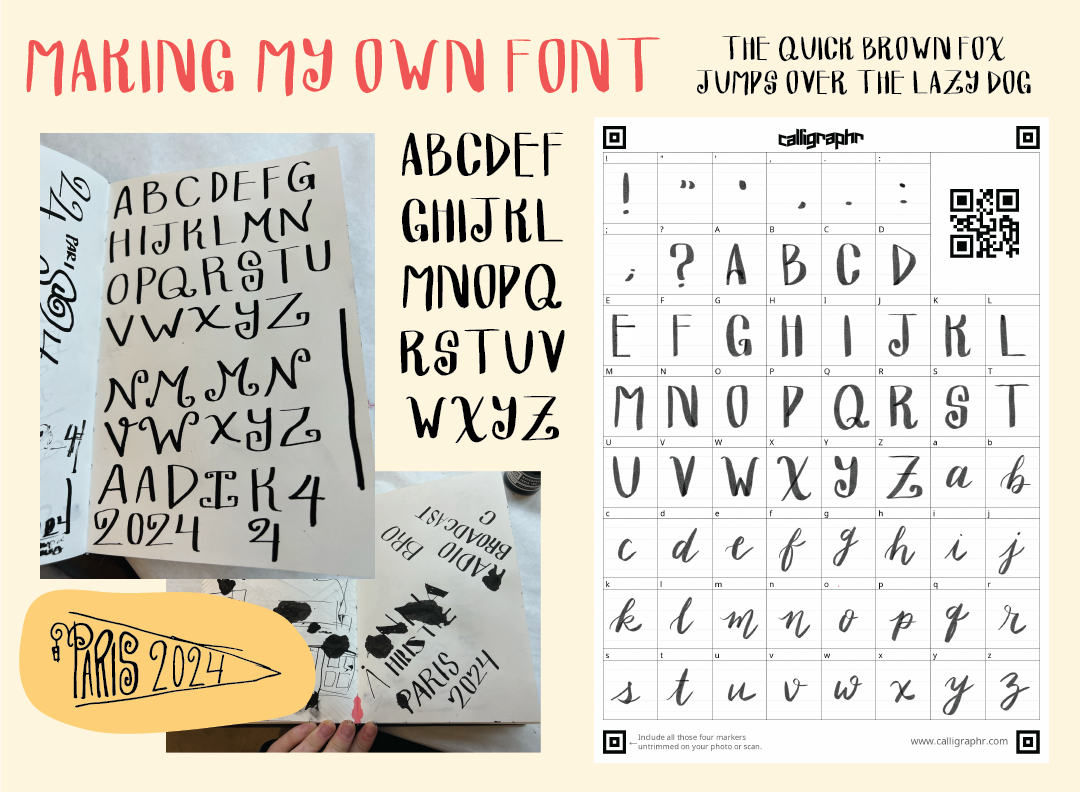 MAKING MY OWN FONT
THE QUICK BROWN FOX
JUMPS OVER THE LAZY DOG
22
4
PARIS
ABCDEFG
HIJKLMN
OPQRSTU
VWXYZ
NMMN
VWXYZ
AADIK4
2024 4
ABCDEF
GHIJKL
MNOPQ
RSTUV
WXYZ
PARIS 2024
BRO
RADIO
BROADCAST
C
PARIS
2024
calligraphr
! " ' , . :
! " ' , . :
; ? A B C D
; ? A B C D
E F G H I J K L
E F G H I J K L
M N O P Q R S T
M N O P Q R S T
U V W X Y Z a b
U V W X Y Z a b
c d e f g h i j
c d e f g h i j
k l m n o p q r
k l m n o p q r
s t u v w x y z
s t u v w x y z
Include all those four markers
untrimmed on your photo or scan.
www.calligraphr.com